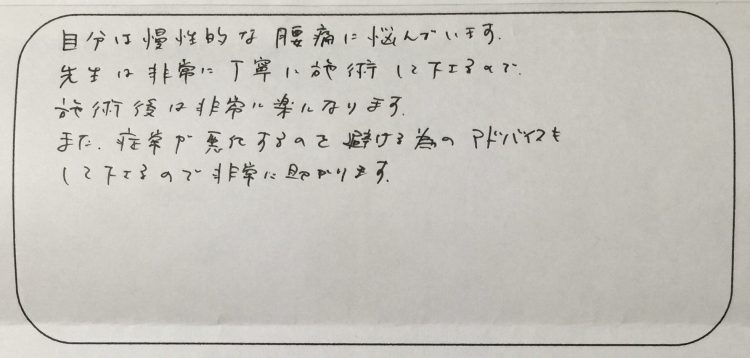 自分は慢性的な腰痛に悩んでいます.
先生は非常に丁寧に施術して下さるので.
施術後は非常に楽になります.
また、症常が悪化するのを避ける為のアドバイスも
して下さるので非常に助かります.